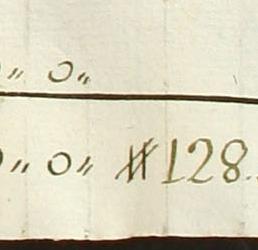 〃 0〃
0〃 0〃 # 128.